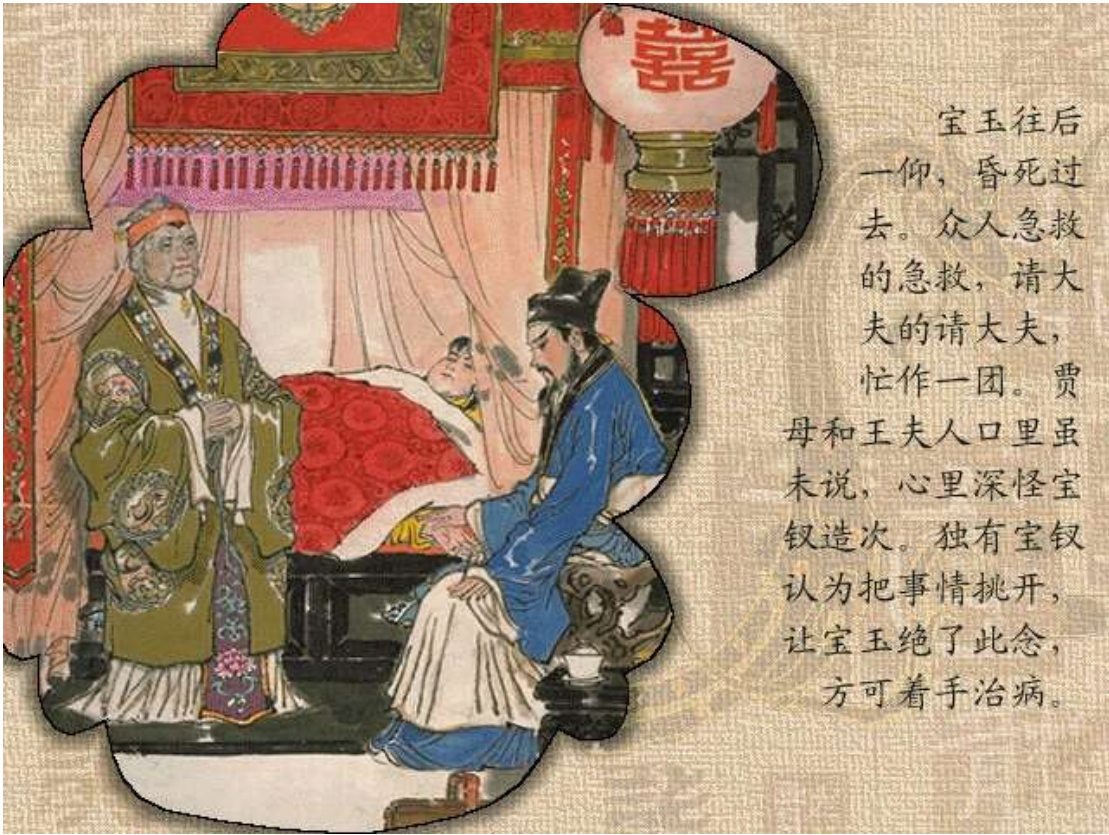 囍
宝玉往后
一仰，昏死过
去。众人急救
的急救，请大
夫的请大夫，
忙作一团。贾
母和王夫人口里虽
未说，心里深怪宝
钗造次。独有宝钗
认为把事情挑开，
让宝玉绝了此念，
方可着手治病。